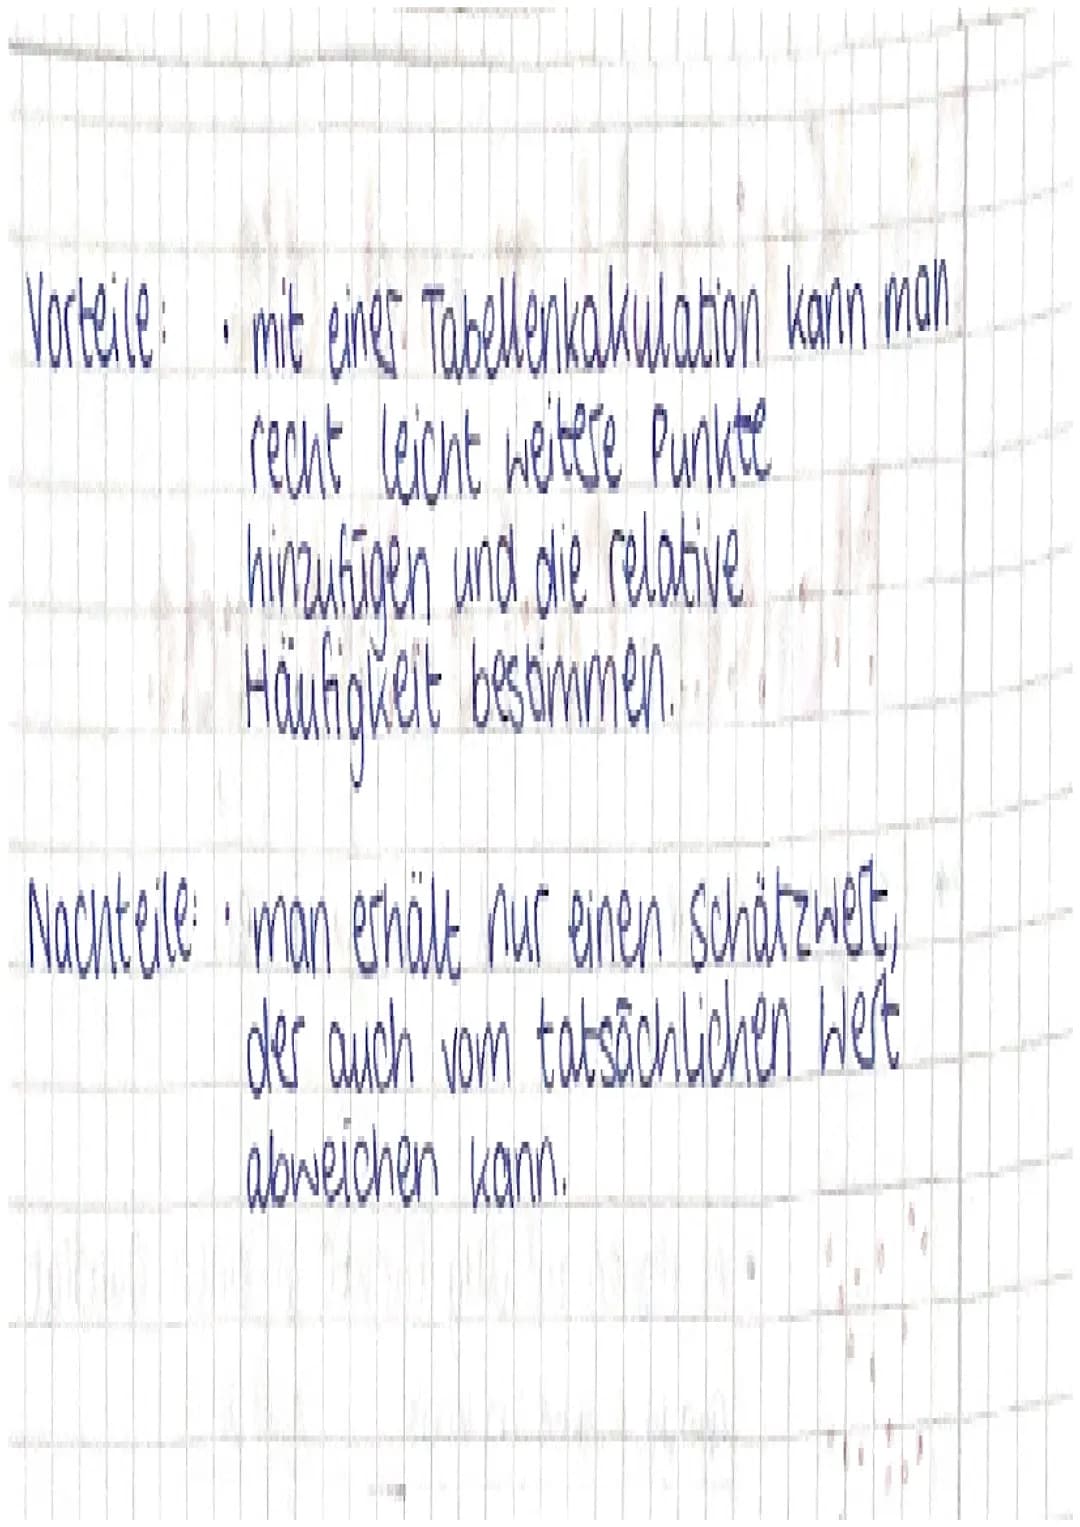 Vorteile: · mit einer Tabellenkakulation kann man
recht leicht weitere Punkte
hinzufügen und die relative
Häufigkeit bestimmen.
Nachteile: · man erhält nur einen Schätzwert,
der auch vom tatsächlichen Wert
abweichen kann.